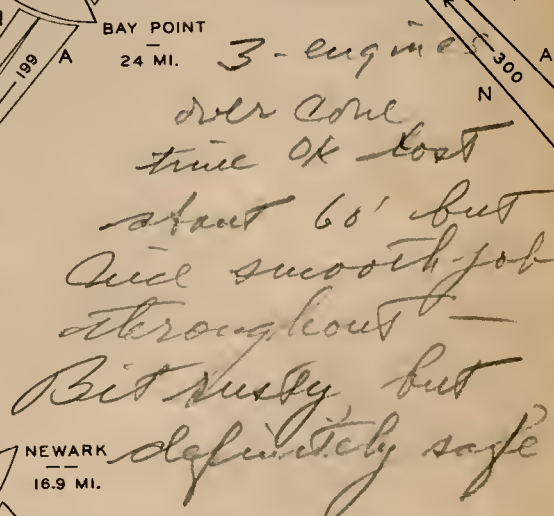 BAY POINT
24 MI.
199
A
300
A
N
3-engines
over cone
time OK lost
about 60' but
nice smooth job
throughout —
Bit rusty, but
definitely safe
NEWARK
16.9 MI.